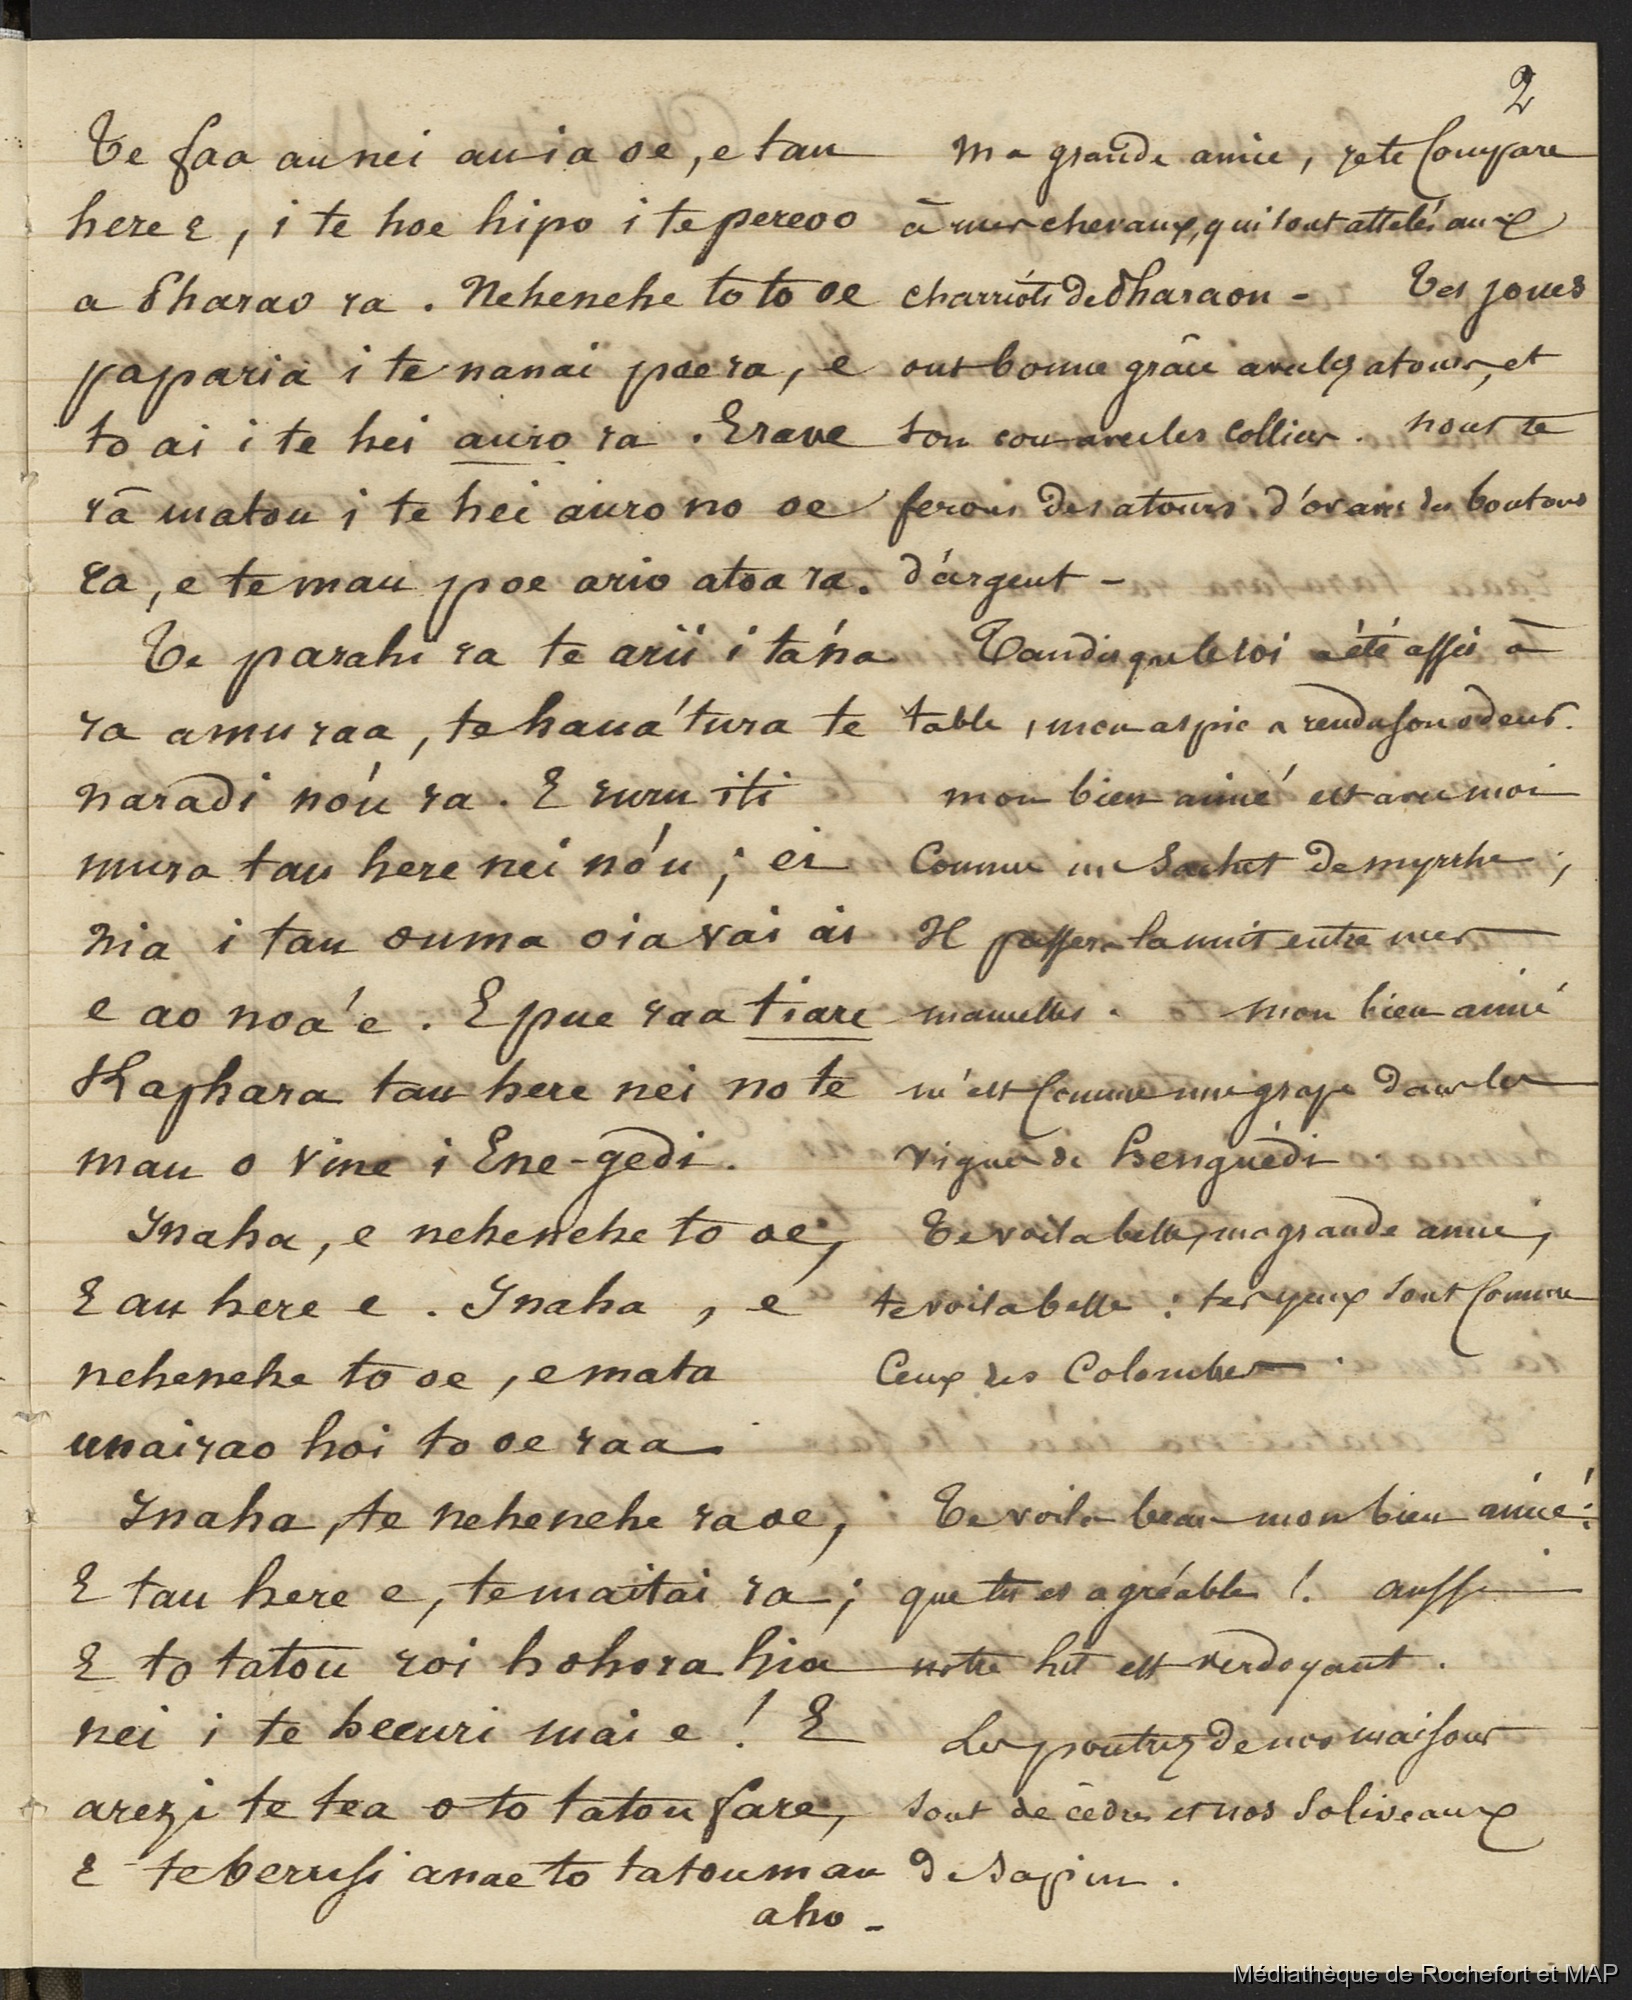 2
Te faa au nei au ia oe, e tau
here e, i te hoe hipo i te pereoo
a Pharao ra. Nehenehe to to oe
paparia i te nanai poe ra, e
to ai i te hei auro ra. E rave
rā matou i te hei auro no oe
ra, e te mau poe ario atoa ra.
Te parahi ra te arii i tá'na
ra amu raa, te hauá'tura te
naradi nó'u ra. E ruru iti
mura tau here nei nó'u; ei
nia i tau ouma oia vai ai
e ao noa'e. E pue raa tiare
Kaphara tau here nei no te
mau o vine i Ene-gedi.
Inaha, e nehenehe to oe,
E au here e. Inaha, e
nehenehe to oe, e mata
unairao hoi to oe raa
Inaha, te nehenehe ra oe,
E tau here e, te maitai ra;
E to tatou roi hohora hia
nei i te heeuri mai e! E
arezi te tea o to tatou fare,
E te berusi anae to tatou mau
aho -
Ma grande amie, je te compare
à mes chevaux, qui sont attelés aux
charriots de Pharaon - Tes joues
ont bonne grâce avec les atours, et
ton cou avec les colliers. nous te
ferons des atours d'or avec des boutons
d'argent -
Tandis que le roi a été assis à
table, mon aspic a rendu son odeur.
mon bien aimé est avec moi
Comme un Sachet de myrrhe;
Il passera la nuit entre mes
mamelles. mon bien aimé
m'est comme une grape dans les
vignes de henguédi.
Te voila belle, ma grande amie,
te voila belle : tes yeux sont comme
Ceux des Colombes.
Te voila beau mon bien aimé!
que tu es agréable!. aussi
notre lit est verdoyant.
Les poutres de nos maisons
sont de cèdre et nos soliveaux
de sapin.
Médiathèque de Rochefort et MAP